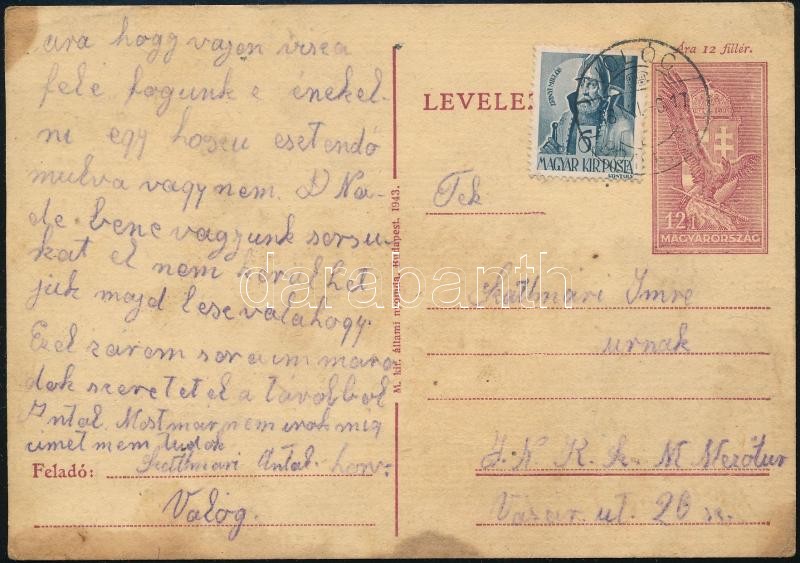 ara hogy vajon visza
felé fogunk e énekel-
ni egy hoszu esetendő
mulva vagy nem. D Na-
de bene vagyunk sorsu-
kat el nem kerülhet
jük majd lesz valahogy.
Ezel zárom soraim mara
dok szeretetel a távolból
Antal. Mostmár nem irok mig
cimet nem tudok
Feladó: Szattmári Antal. honv.
Valóg.
M. kir. állami nyomda, Budapest. 1943.
Ára 12 fillér.
LEVELEZ
ZRINYI MIKLÓS
MAGYAR KIR. POSTA
12f
MAGYARORSZÁG
Tek
Szattmári Imre
urnak
J. N. K. Sz. M. Mezőtur
Vásár. ut. 26 sz.
darabanth